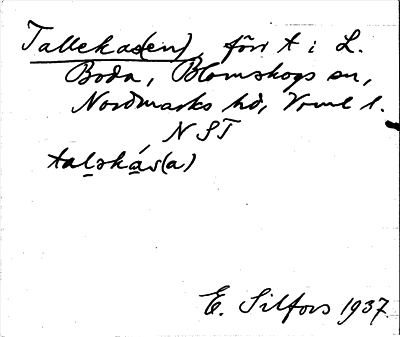 Tallekas(en), förr t i L.
Boda, Blomskogs sn,
Nordmarks hd, Vrml l.
NST
talskás(a)
E. Silfors 1937